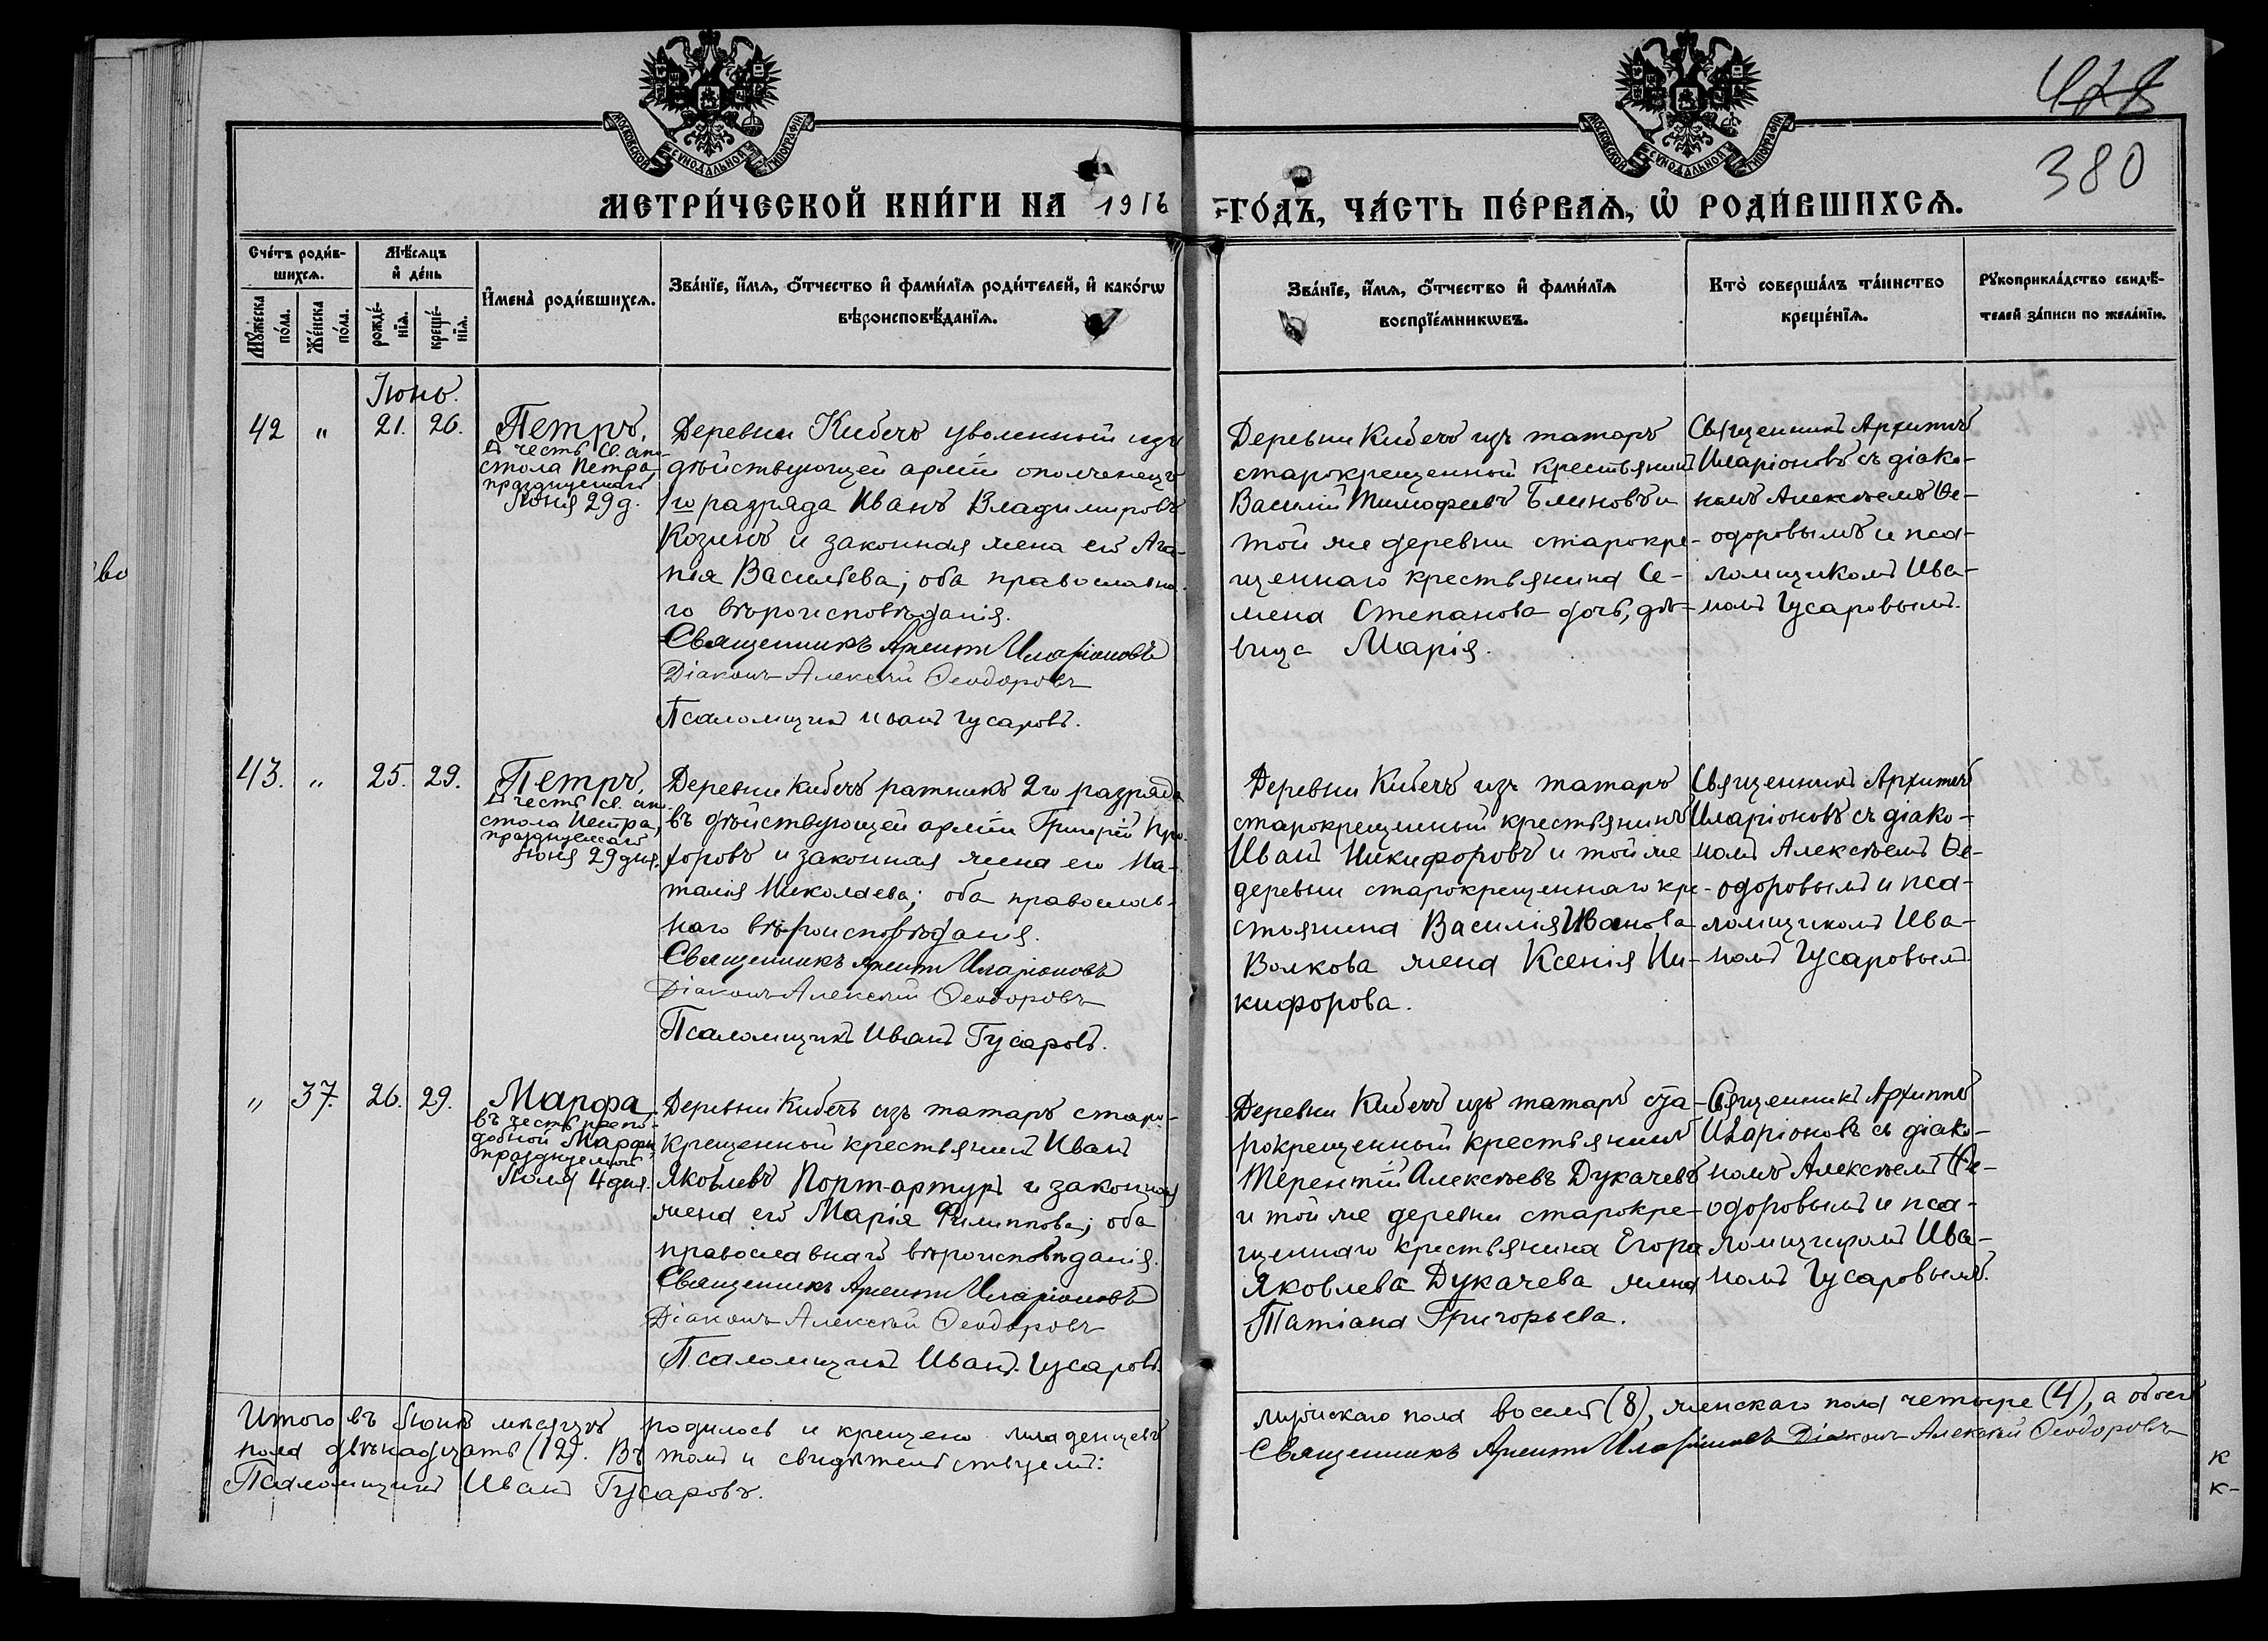 428
380
МОСКОВСКОЙ СѴНОДАЛЬНОЙ ТИПОГРАФІИ
МОСКОВСКОЙ СѴНОДАЛЬНОЙ ТИПОГРАФІИ
МЕТРИ́ЧЕСКОЙ КНИ́ГИ НА 1916
ГО́ДЪ, ЧА́СТЬ ПЕ́РВАѦ, Ѡ҆ РОДИ́ВШИХСѦ.
Сче́тъ роди́в-
шихсѧ.
Мꙋ́жеска по́ла.
Же́нска по́ла.
Мѣ́сѧцъ
и҆ де́нь
рожде́-
нїѧ.
креще́-
нїѧ.
И҆мена̀ роди́вшихсѧ.
Зва́нїе, и҆́мѧ, ѻ҆́тчество и҆ фами́лїѧ роди́телей, и҆ како́гѡ
вѣроисповѣ́данїѧ.
Зва́нїе, и҆́мѧ, ѻ҆́тчество и҆ фами́лїѧ
воспрїе́мникѡвъ.
Кто̀ соверша́лъ та́инство
креще́нїѧ.
Рꙋкоприкла́дство свидѣ́-
телей за́писи по жела́нїю.
Іюнь.
42 " 21. 26.
Петръ,
въ честь Св. апо-
стола Петра,
празднуемаго
Іюня 29 д.
Деревни Кибечъ уволенный изъ
дѣйствующей арміи ополченецъ
1го разряда Иванъ Владимировъ
Козинъ и законная жена его Ага-
пія Васильева; оба православна-
го вѣроисповѣданія.
Священникъ Архипъ Иларіоновъ
Діаконъ Алексѣй Ѳеодоровъ
Псаломщикъ Иванъ Гусаровъ.
Деревни Кибечъ изъ татаръ
старокрещенный крестьянинъ
Василій Тимофеевъ Блиновъ и
той же деревни старокре-
щеннаго крестьянина Се-
мена Степанова дочь, дѣ-
вица Марія.
Священникъ Архиппъ
Иларіоновъ съ діако-
номъ Алексѣемъ Ѳе-
одоровымъ и пса-
ломщикомъ Ива-
номъ Гусаровымъ.
43. " 25. 29.
Петръ,
въ честь св. апо-
стола Петра,
празднуемаго
Іюня 29 дня.
Деревни Кибечъ ратникъ 2го разряда
въ дѣйствующей арміи Григорій Про-
хоровъ и законная жена его На-
талія Николаева; оба православ-
наго вѣроисповѣданія.
Священникъ Архипъ Иларіоновъ
Діаконъ Алексѣй Ѳеодоровъ
Псаломщикъ Иванъ Гусаровъ.
Деревни Кибечъ изъ татаръ
старокрещенный крестьянинъ
Иванъ Никифоровъ и той же
деревни старокрещеннаго кре-
стьянина Василія Иванова
Волкова жена Ксенія Ни-
кифорова.
Священникъ Архиппъ
Иларіоновъ съ діако-
номъ Алексѣемъ Ѳе-
одоровымъ и пса-
ломщикомъ Ива-
номъ Гусаровымъ.
" 37. 26. 29.
Марфа,
въ честь препо-
добной Марфы,
празднуемой
Іюля 4 дня.
Деревни Кибечъ изъ татаръ старо-
крещенный крестьянинъ Иванъ
Яковлевъ Порт-артуръ и законная
жена его Марія Филиппова; оба
православнаго вѣроисповѣданія.
Священникъ Архипъ Иларіоновъ
Діаконъ Алексѣй Ѳеодоровъ
Псаломщикъ Иванъ Гусаровъ.
Деревни Кибечъ изъ татаръ ста-
рокрещенный крестьянинъ
Терентій Алексѣевъ Дукачевъ
и той же деревни старокре-
щеннаго крестьянина Егора
Яковлева Дукачева жена
Татіана Григорьева.
Священникъ Архиппъ
Иларіоновъ съ діако-
номъ Алексѣемъ Ѳе-
одоровымъ и пса-
ломщикомъ Ива-
номъ Гусаровымъ.
Итого въ Іюнѣ мѣсяцѣ родилось и крещено младенцевъ
мужскаго пола восемь (8), женскаго пола четыре (4), а обоего
пола двѣнадцать (12). Въ томъ и свидѣтельствуемъ:
Священникъ Архипъ Иларіоновъ Діаконъ Алексѣй Ѳеодоровъ
Псаломщикъ Иванъ Гусаровъ.